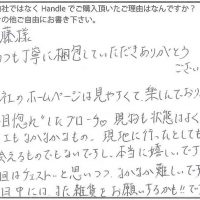 社ではなく Handle でご購入頂いたご理由はなんですか？
の他ご自由にお書き下さい。
藤様
つも丁寧に梱包していただきありがとう
ござい
社のホームページは見やすくて楽しんでおり
目惚れしたブローチ。現物も状態はよく
てもなかなかもの。現地に行ったとしても
会えるものでもないですし、本当に嬉しいで
回はチェスト…と思いつつ、なかなか難しいで
日中には、また雑貨をお願いするかも!!で